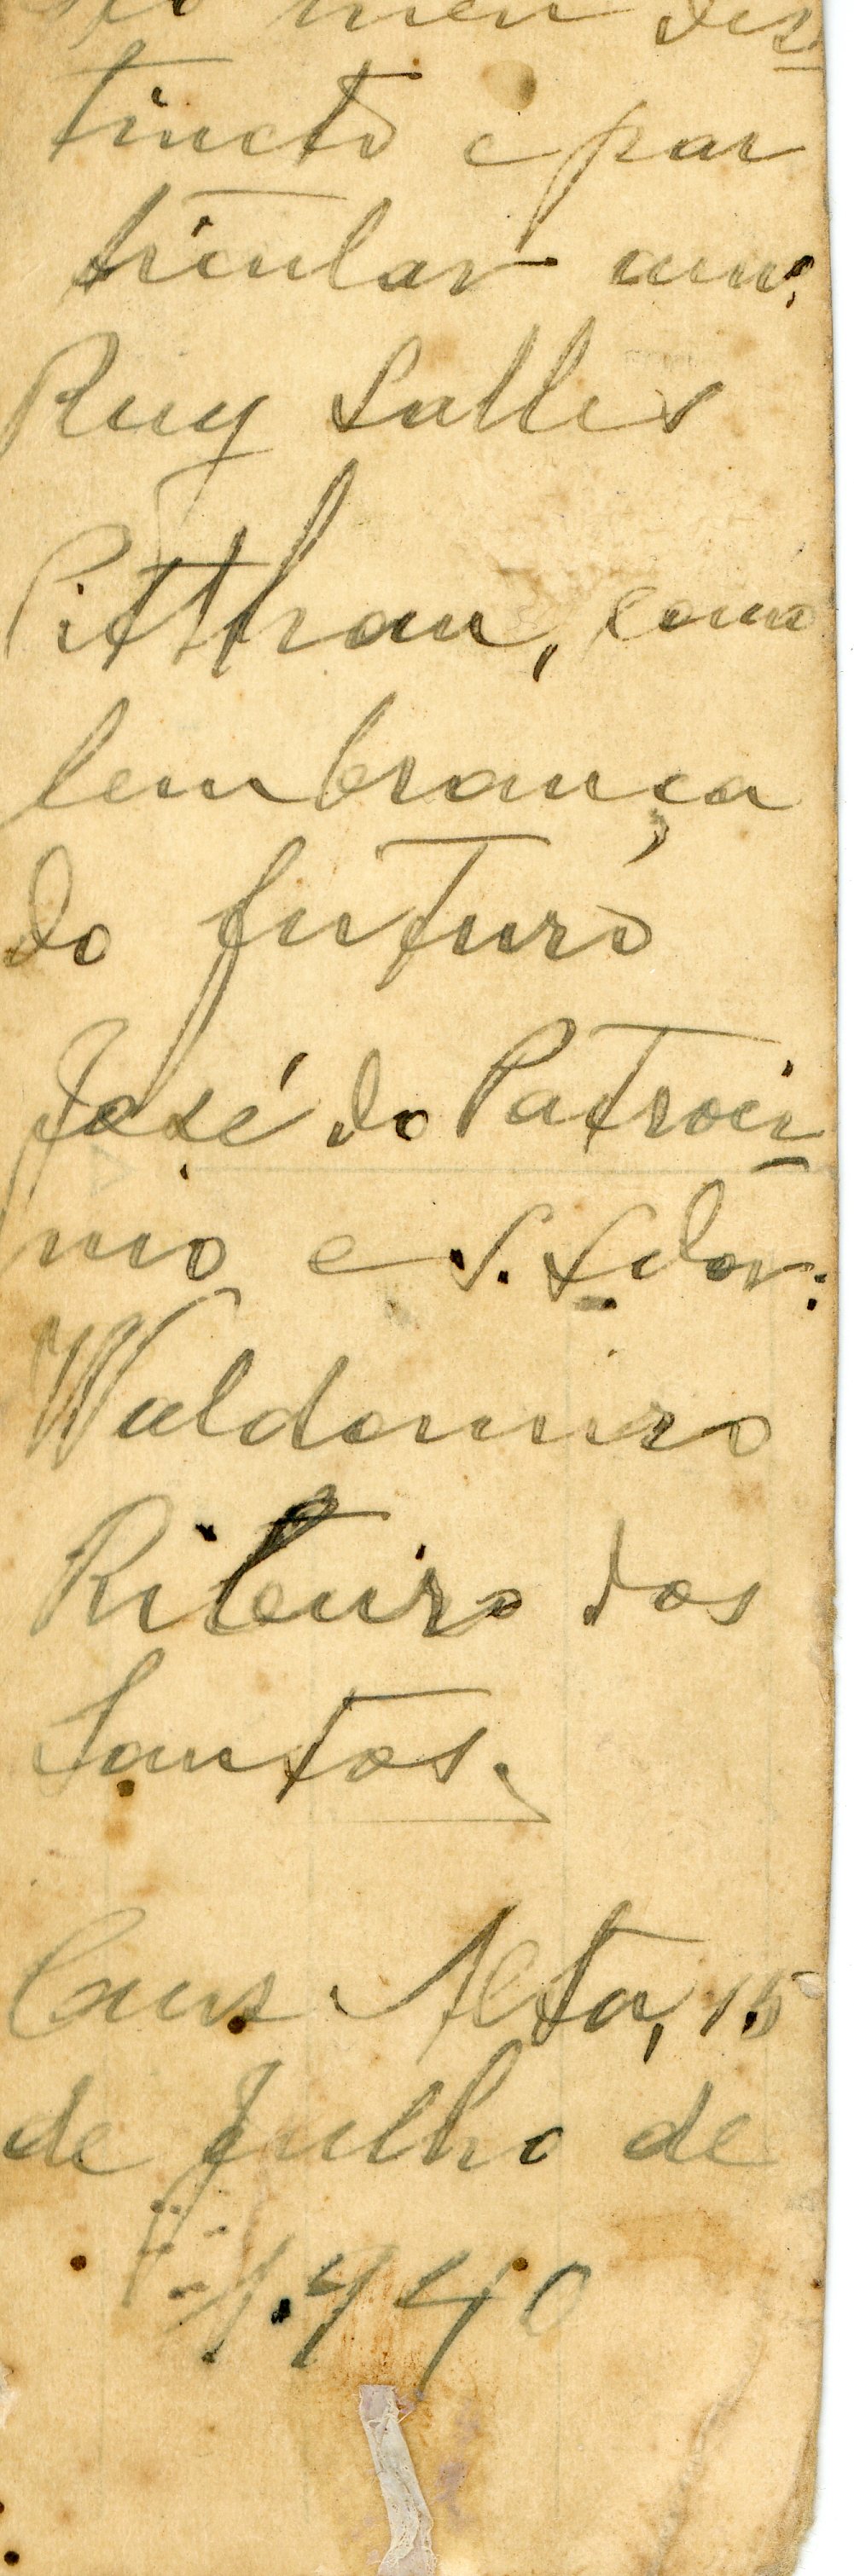 meu dis-
tincto e par
ticular am:
Ruy Salles
Pitthan, como
lembrança
do futuro
José do Patroci-
nio e S. S.dor:
Waldemiro
Ribeiro dos
Santos.
Cruz Alta, 15
de Julho de
1.940